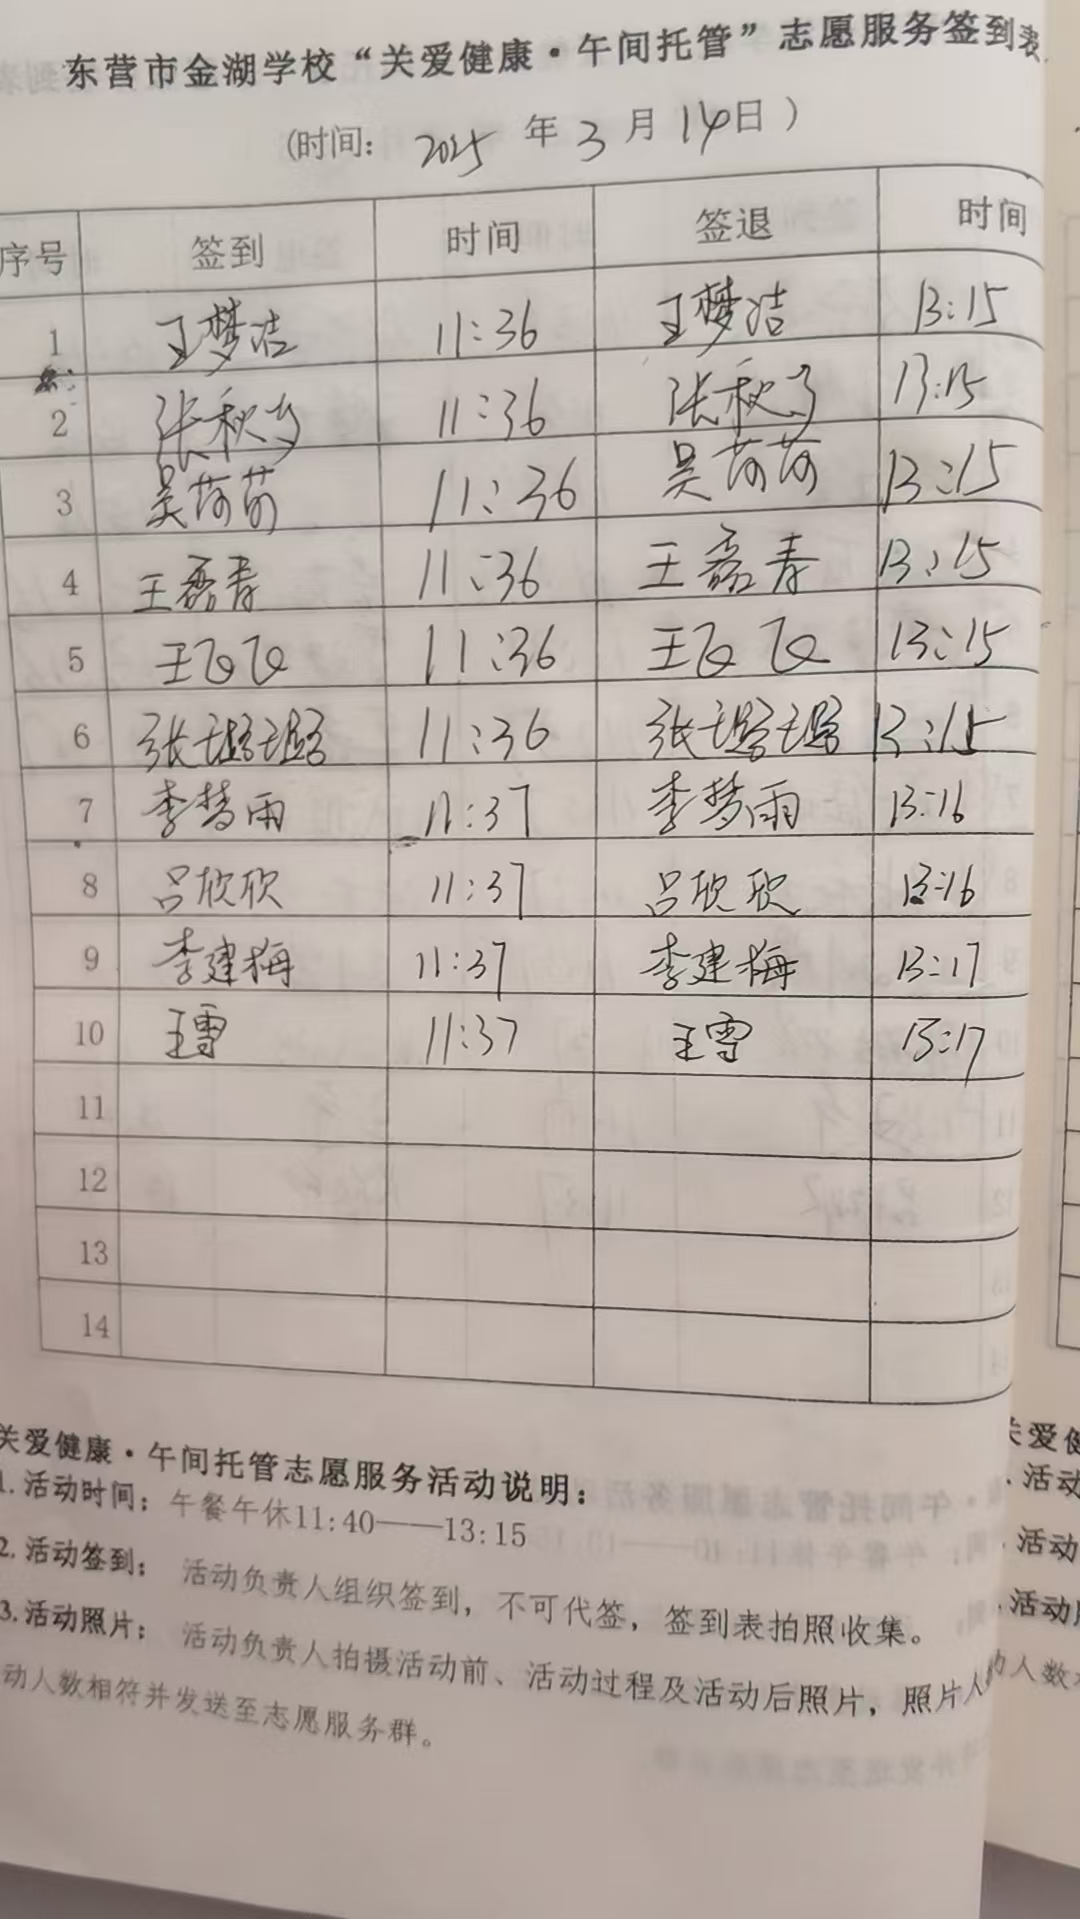 东营市金湖学校“关爱健康·午间托管”志愿服务签到表
(时间: 2025 年 3 月 14日)
序号 签到 时间 签退 时间
1 王梦洁 11:36 王梦洁 13:15
2 张秋 11:36 张秋 13:15
3 吴荷荷 11:36 吴荷荷 13:15
4 王磊青 11:36 王磊青 13:15
5 王飞飞 11:36 王飞飞 13:15
6 张璐璐 11:36 张璐璐 13:15
7 李梦雨 11:37 李梦雨 13:16
8 吕欣欣 11:37 吕欣欣 13:16
9 李建梅 11:37 李建梅 13:17
10 王雪 11:37 王雪 13:17
11
12
13
14
关爱健康·午间托管志愿服务活动说明:
1. 活动时间: 午餐午休11:40——13:15
2. 活动签到: 活动负责人组织签到，不可代签，签到表拍照收集。
3. 活动照片: 活动负责人拍摄活动前、活动过程及活动后照片，照片人
动人数相符并发送至志愿服务群。
关爱健
活动
活动
活动
的人数